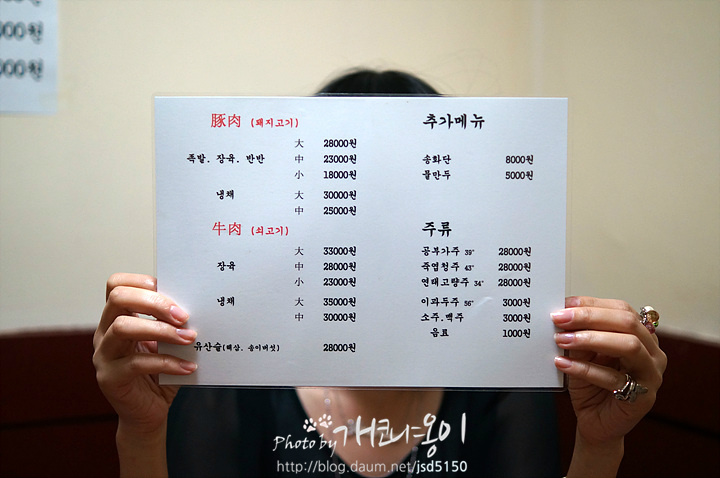 000원
000원
豚肉 (돼지고기)
大 28000원
족발. 장육. 반반 中 23000원
小 18000원
냉채 大 30000원
中 25000원
牛肉 (쇠고기)
大 33000원
장육 中 28000원
小 23000원
냉채 大 35000원
中 30000원
유산슬(해삼. 송이버섯) 28000원
추가메뉴
송화단 8000원
물만두 5000원
주류
공부가주 39° 28000원
죽엽청주 43° 28000원
연태고량주 34° 28000원
이과두주 56° 3000원
소주.맥주 3000원
음료 1000원
Photo by 개코냐옹이
http://blog.daum.net/jsd5150